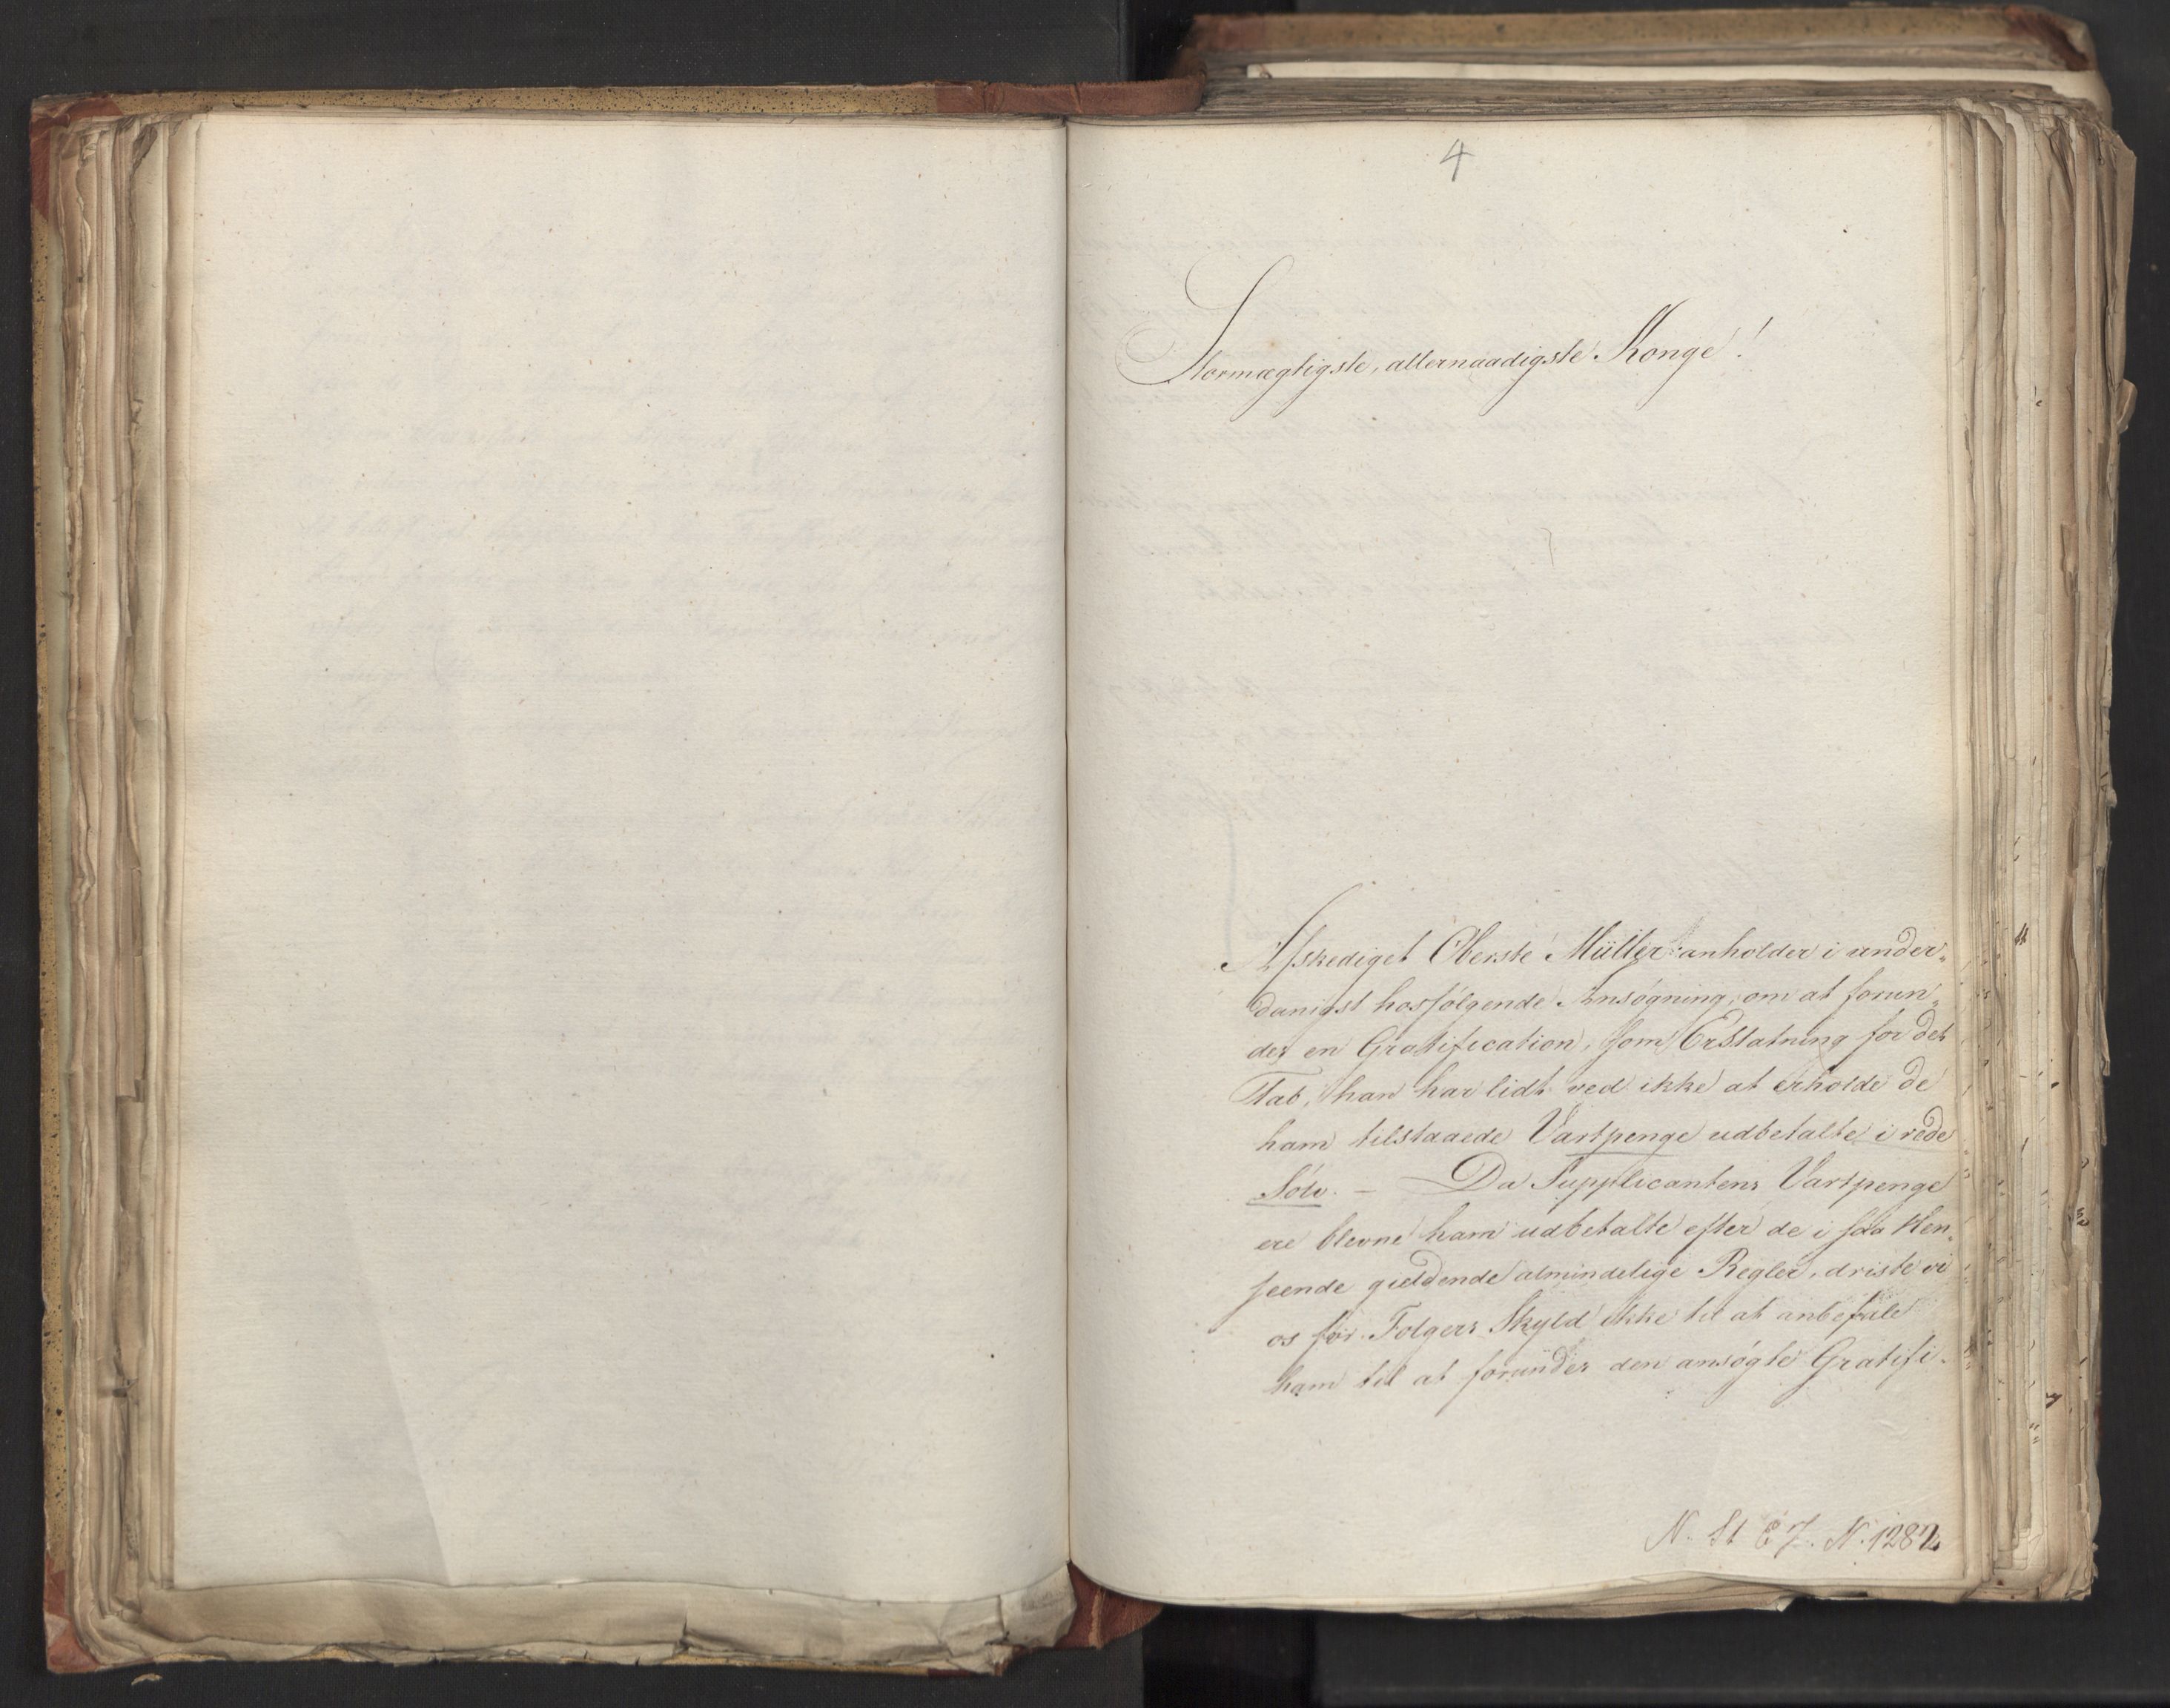 4
Stormægtigste, allernaadigste Konge!
Afskediget Oberste Müller anholder i under„
danigst hosfølgende Ansøgning, om at forun„
des en Gratification, som Erstatning for det
Tab, han har lidt ved ikke at erholde de
ham tilstaaede Vartpenge udbetalte i rede
Sølv. — Da Supplicantens Vartpenge
ere blevne ham udbetalte efter de i saa Hen„
seende gieldende almindelige Regler, driste vi
os for Følgers Skyld ikke til at anbefale
ham til at forundes den ansøgte Gratifi-
N. St E 7. N. 1282